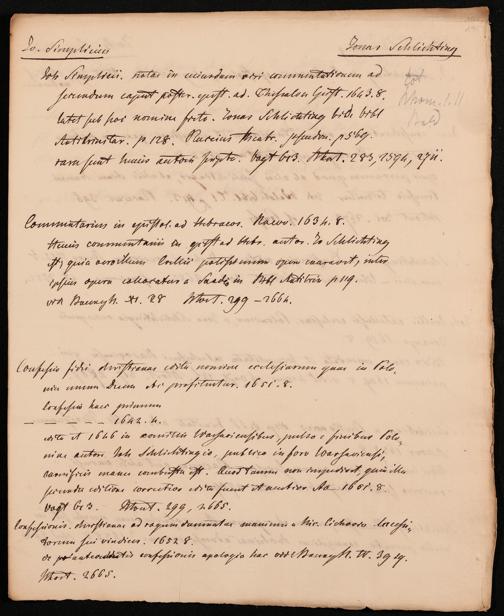 Jo. Simplicius
Jonas Schlichting
Joh Simplicii. notae in eiusdem viri commentationem ad
secundum caput poster. epist. ad. Thessalon Grot. 1643. 8.
latet sub hoc nomine forte. Jonas Schlichting vid. bibl
Antitrinitar. p. 128. Placcius theatr. pseudon. p. 569.
rara sunt huius autoris scripta. Vogt 613. 283, 1594,
Commentarius in epistol. ad Hebraeos. Racov. 1634. 8.
Huius commentarii in epist ad Hebr. autor. Jo Schlichting
est, quia Crellii potissimum opem inter
ipsius opera collocatur a Sandio in Bibl Antitrin p 119.
vid Baumg. XI. 28 299 – 2664.
Confessio fidei christianae edita nomine ecclesiarum quae in Polo,
nia unum Deum &c profitentur. 1651. 8.
Confessio haec primum
– – – – – – – 1642. 4.
edita et 1646 in comitiis Warsaviensibus, pulso e finibus Polo,
niae autore Joh Schlichtingio, publice in foro Warsaviensi,
carnificis manu combusta est. Quod tamen non impedivit, quin illa
secunda editione correctior edita fuerit et auctior Ao 1651. 8.
Vogt 613. 299, 2665.
Confessionis christianae ad rogum damnatae manium a Nic. Cichovio lacessi,
torum sui vindices. 1652 8.
de confessionis apologia hac vide Baumg. IV. 39 19.
2665.